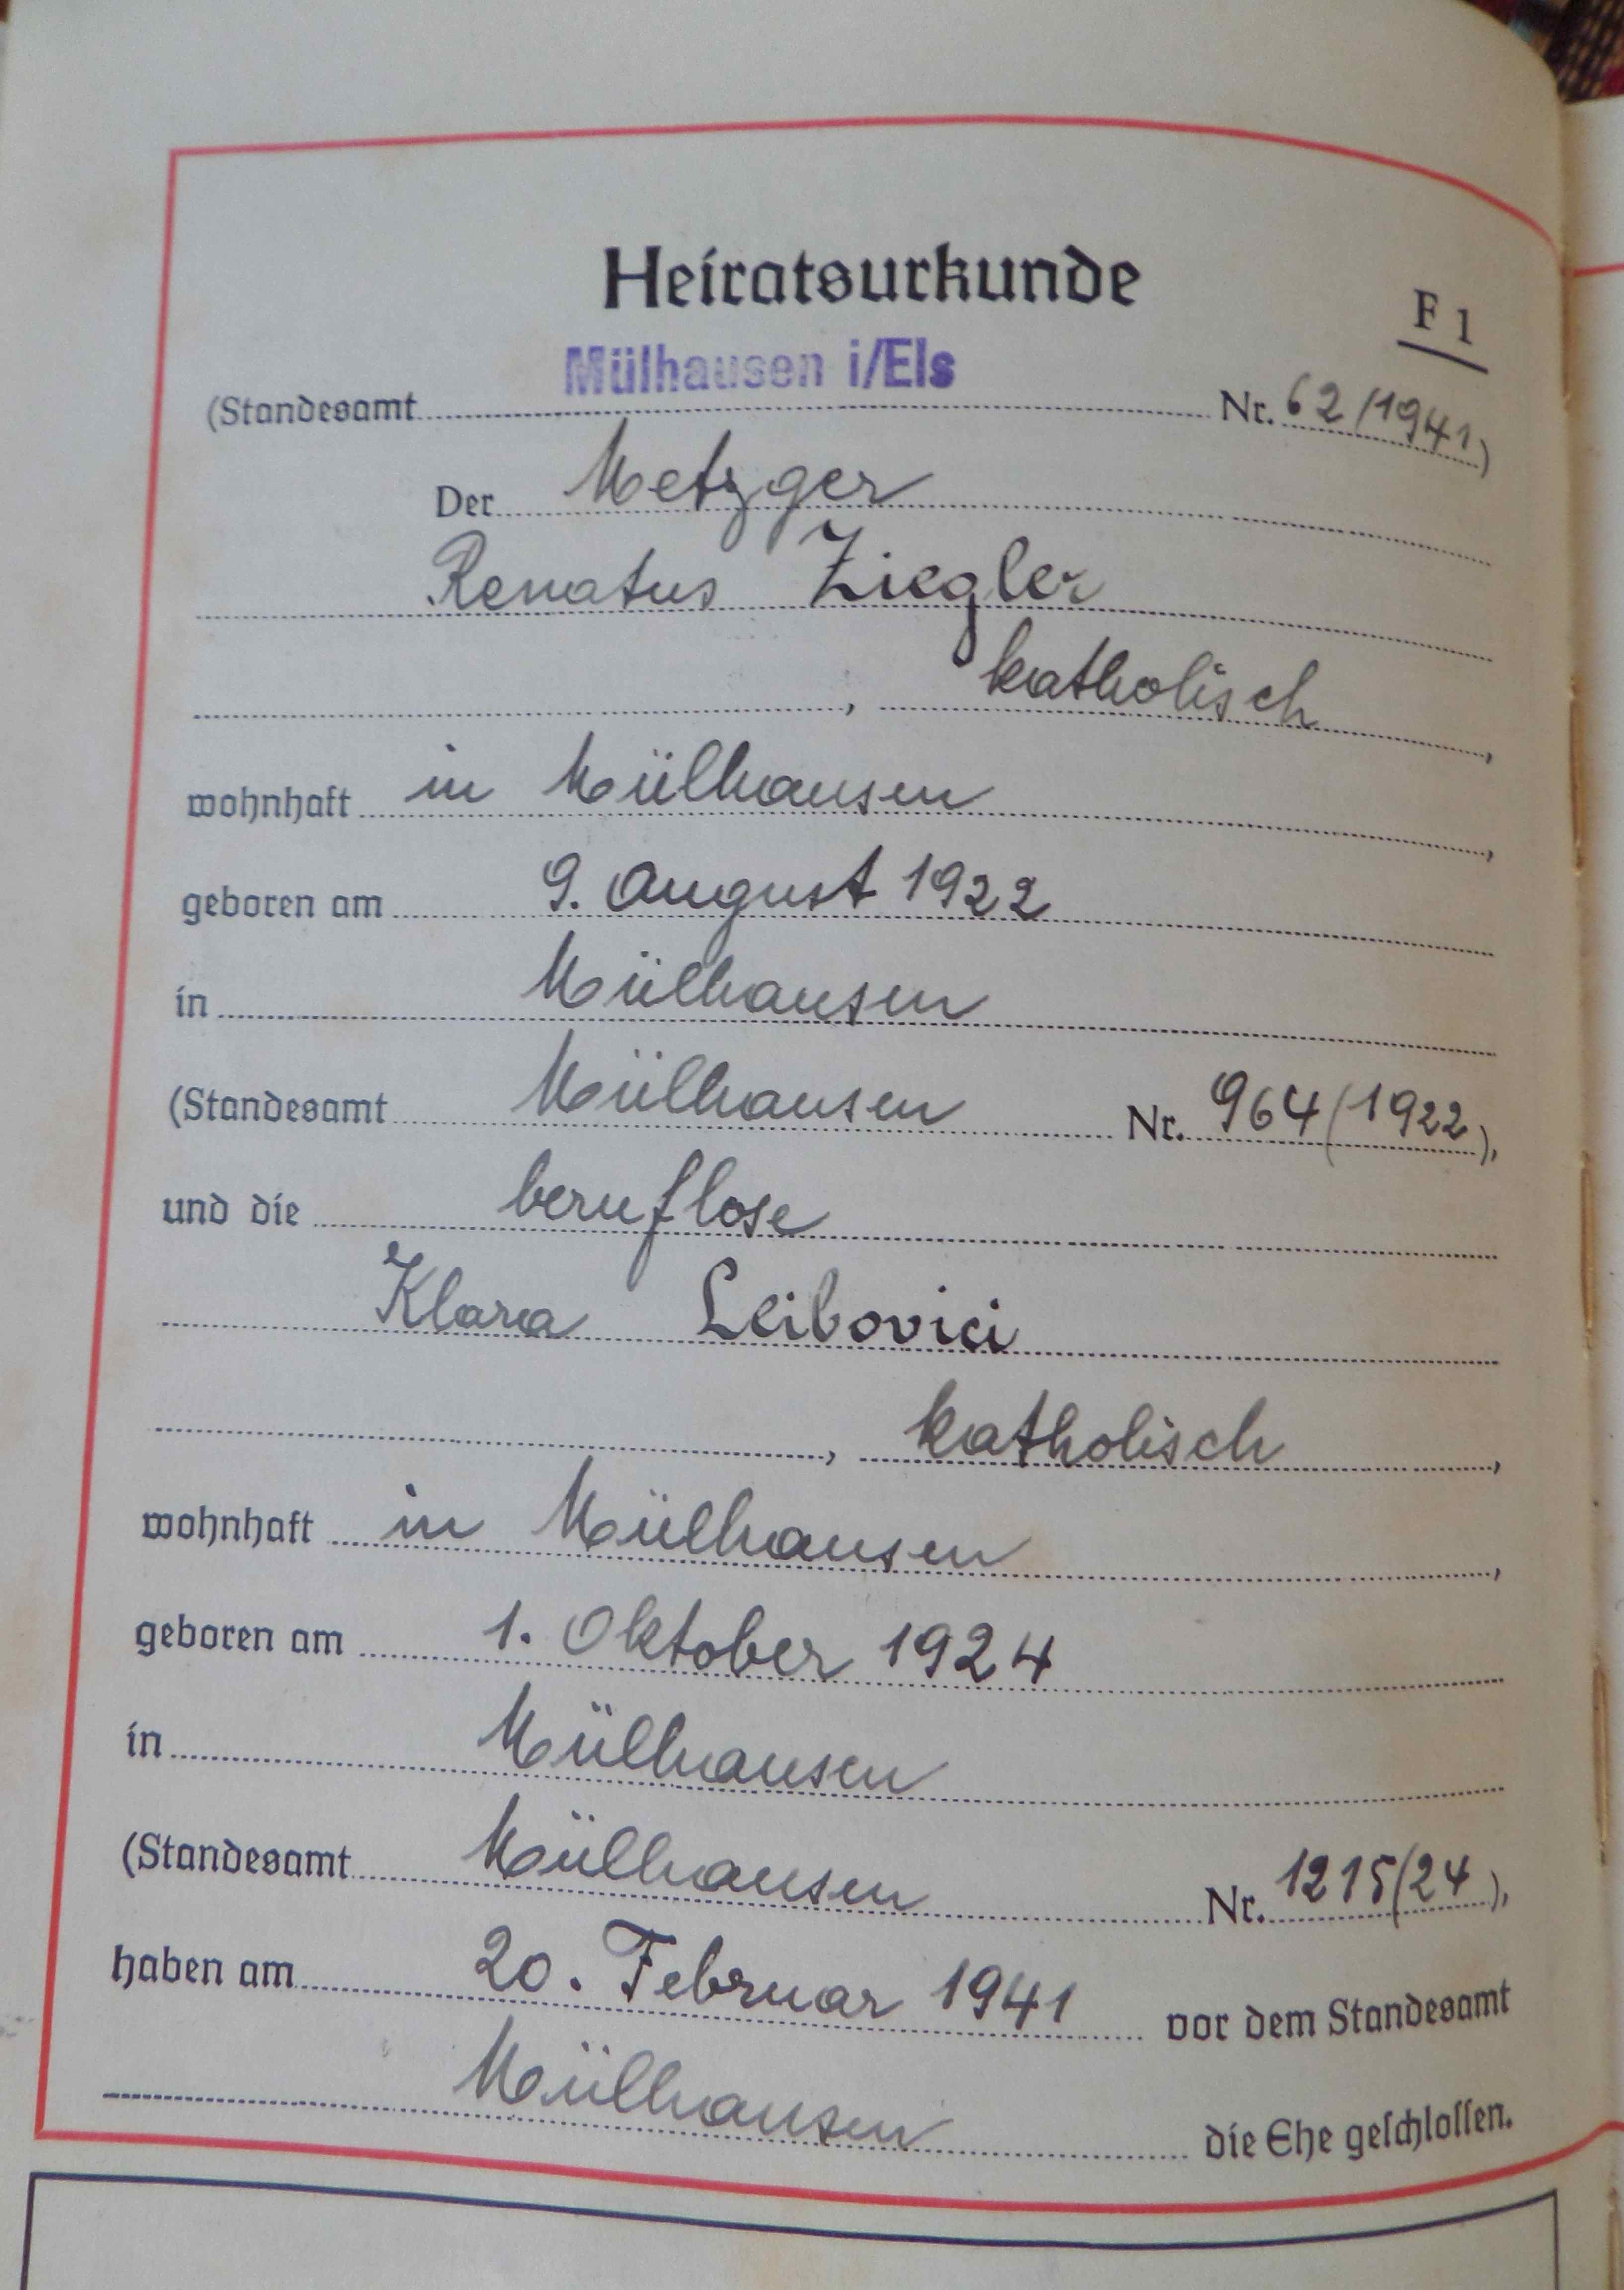 Heiratsurkunde
F 1
Mülhausen i/Els
(Standesamt Nr. 62/1941)
Der Metzger
Renatus Ziegler
, katholisch,
wohnhaft in Mülhausen,
geboren am 9. August 1922
in Mülhausen
(Standesamt Mülhausen Nr. 964(1922),
und die beruflose
Klara Leibovici
, katholisch,
wohnhaft in Mülhausen,
geboren am 1. Oktober 1924
in Mülhausen
(Standesamt Mülhausen Nr. 1215(24),
haben am 20. Februar 1941 vor dem Standesamt
Mülhausen die Ehe geschlossen.